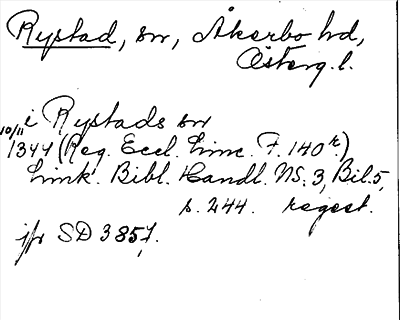 Rystad, sn, Åkerbo hd,
Österg. l.
i Rystads sn
10/11 1344 (Reg. Eccl. Linc. F. 140 r.)
Link. Bibl. Handl. NS. 3, Bil. 5,
s. 244. regest.
jfr SD 3857.